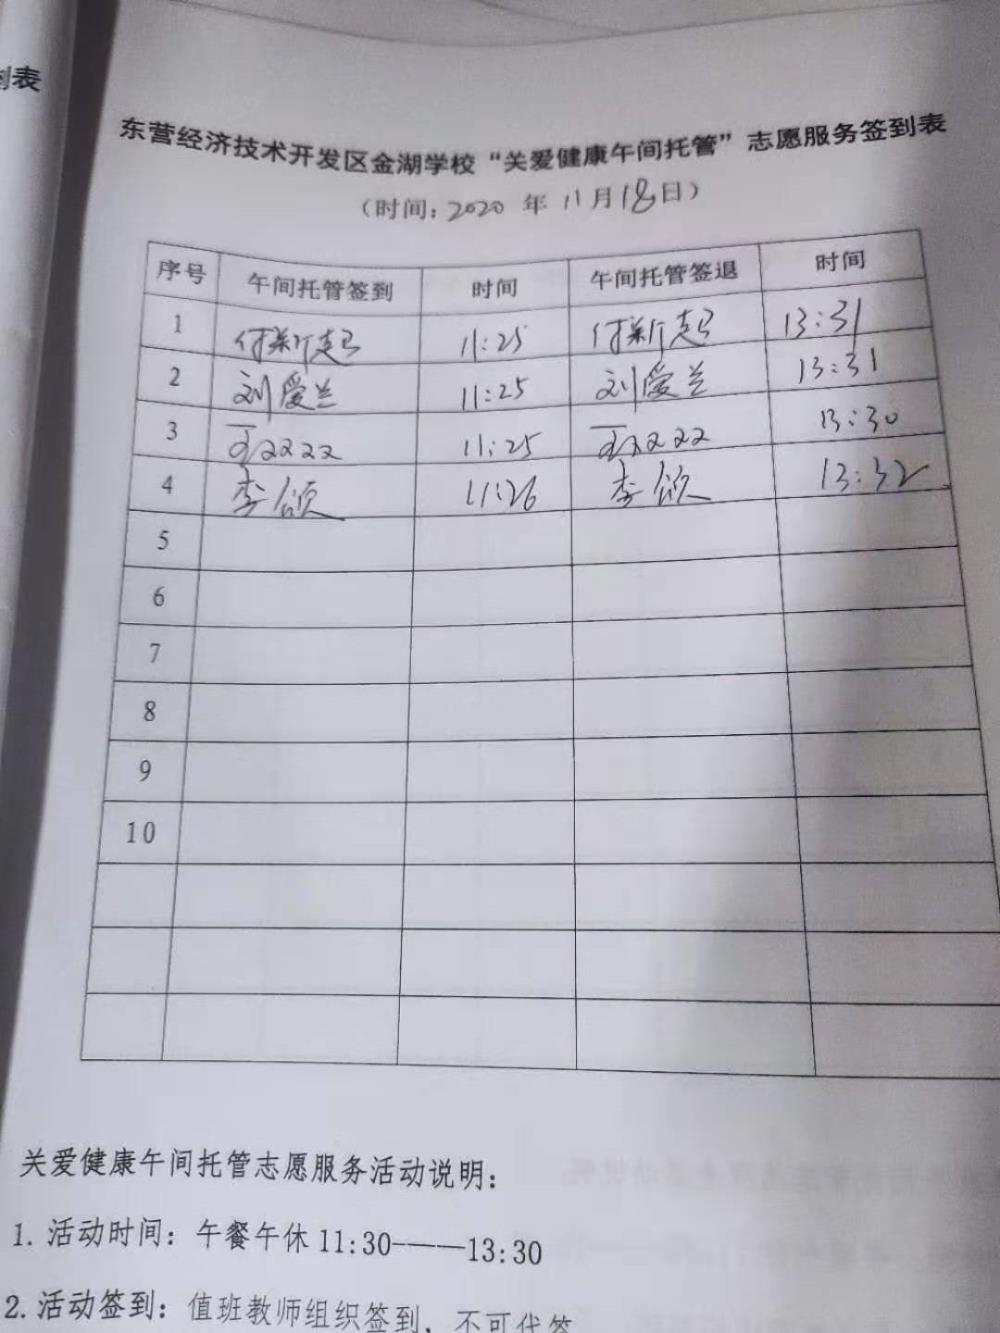 到表
东营经济技术开发区金湖学校“关爱健康午间托管”志愿服务签到表
（时间：2020 年 11月18日）
序号 午间托管签到 时间 午间托管签退 时间
1 付新起 11:25 付新起 13:31
2 刘爱兰 11:25 刘爱兰 13:31
3 11:25 13:30
4 李颂 11:26 李颂 13:32
5
6
7
8
9
10
关爱健康午间托管志愿服务活动说明：
1. 活动时间：午餐午休 11:30——13:30
2. 活动签到：值班教师组织签到，不可代签